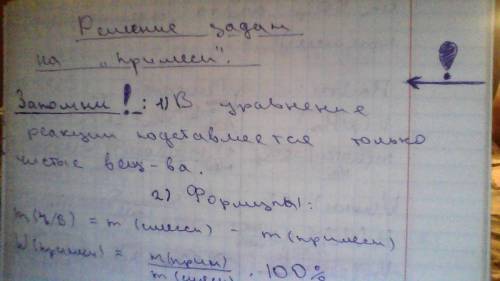 Решение задач
на "примеси".
Запомни!: 1) В уравнение
реакции подставляется только
чистые вещ-ва.
2) Формулы:
m(ч/в) = m(смеси) - m(примеси)
W(примеси) = m(прим)/m(смеси) · 100%
!